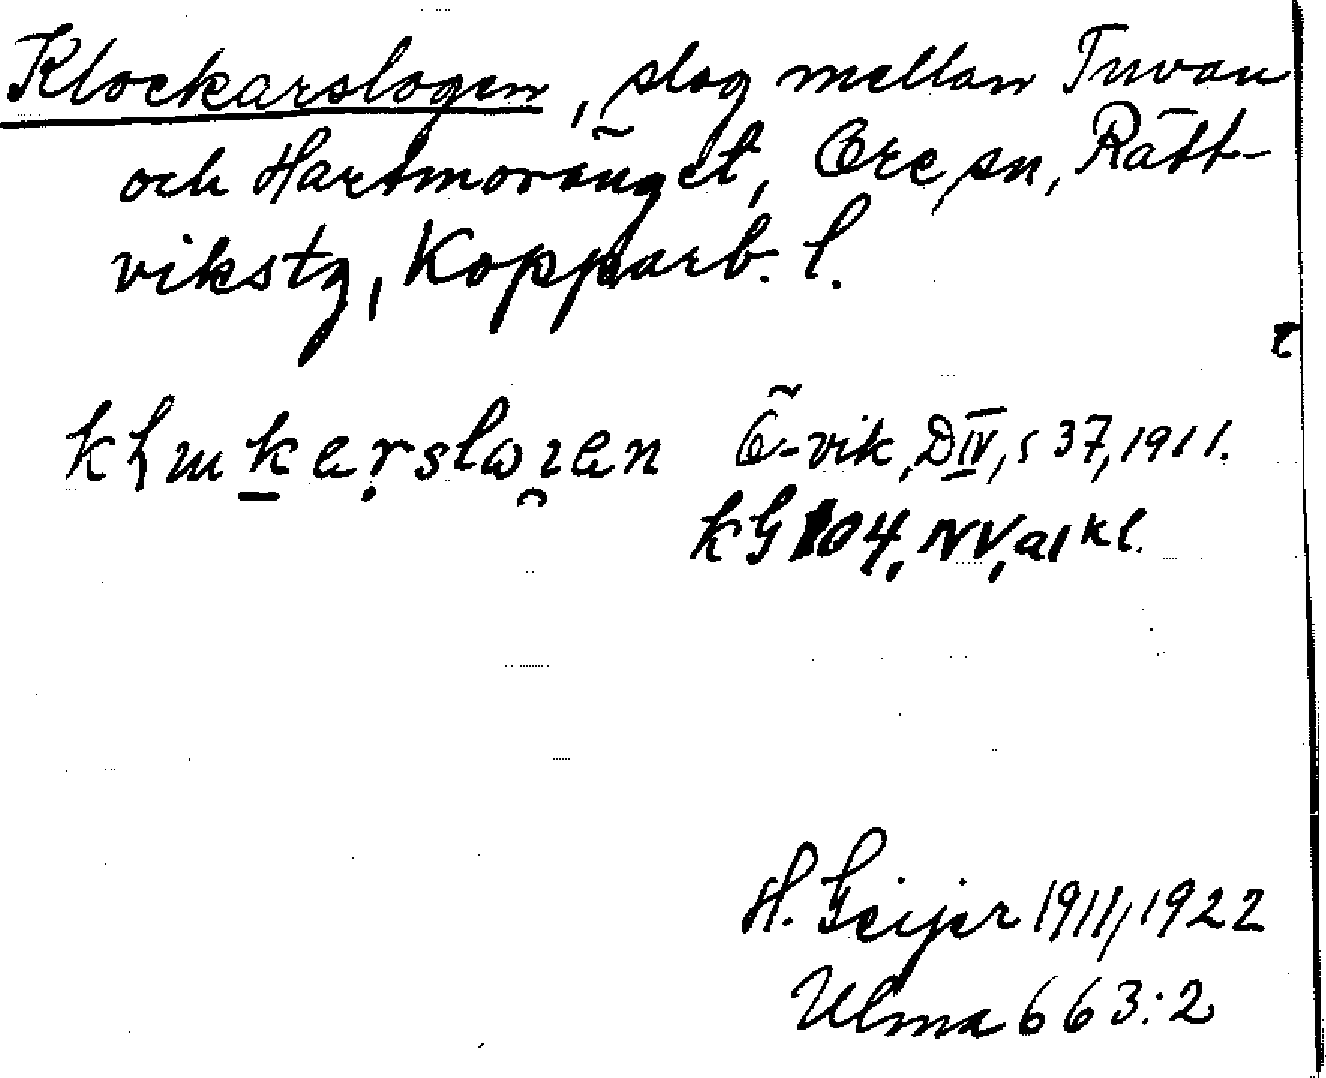 Klockarslogen, slog mellan Tuvan
och Hartmoränget, Ore sn, Rätt-
vikstg, Kopparb. l.
E-vik, D IV, s 37, 1911.
KG 104, NV, a1 kl.
H. Geijer 1911, 1922
Ulma 663:2